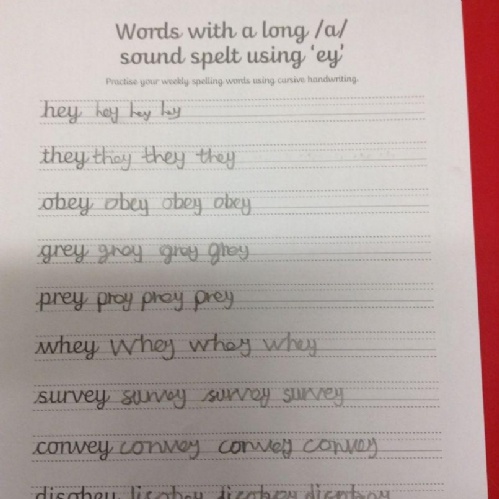 Words with a long /a/
sound spelt using 'ey'
Practise your weekly spelling words using cursive handwriting.
hey hey hey hey
they they they they
obey obey obey obey
grey grey grey grey
prey prey prey prey
whey whey whey whey
survey survey survey survey
convey convey convey convey
disobey disobey disobey disobey